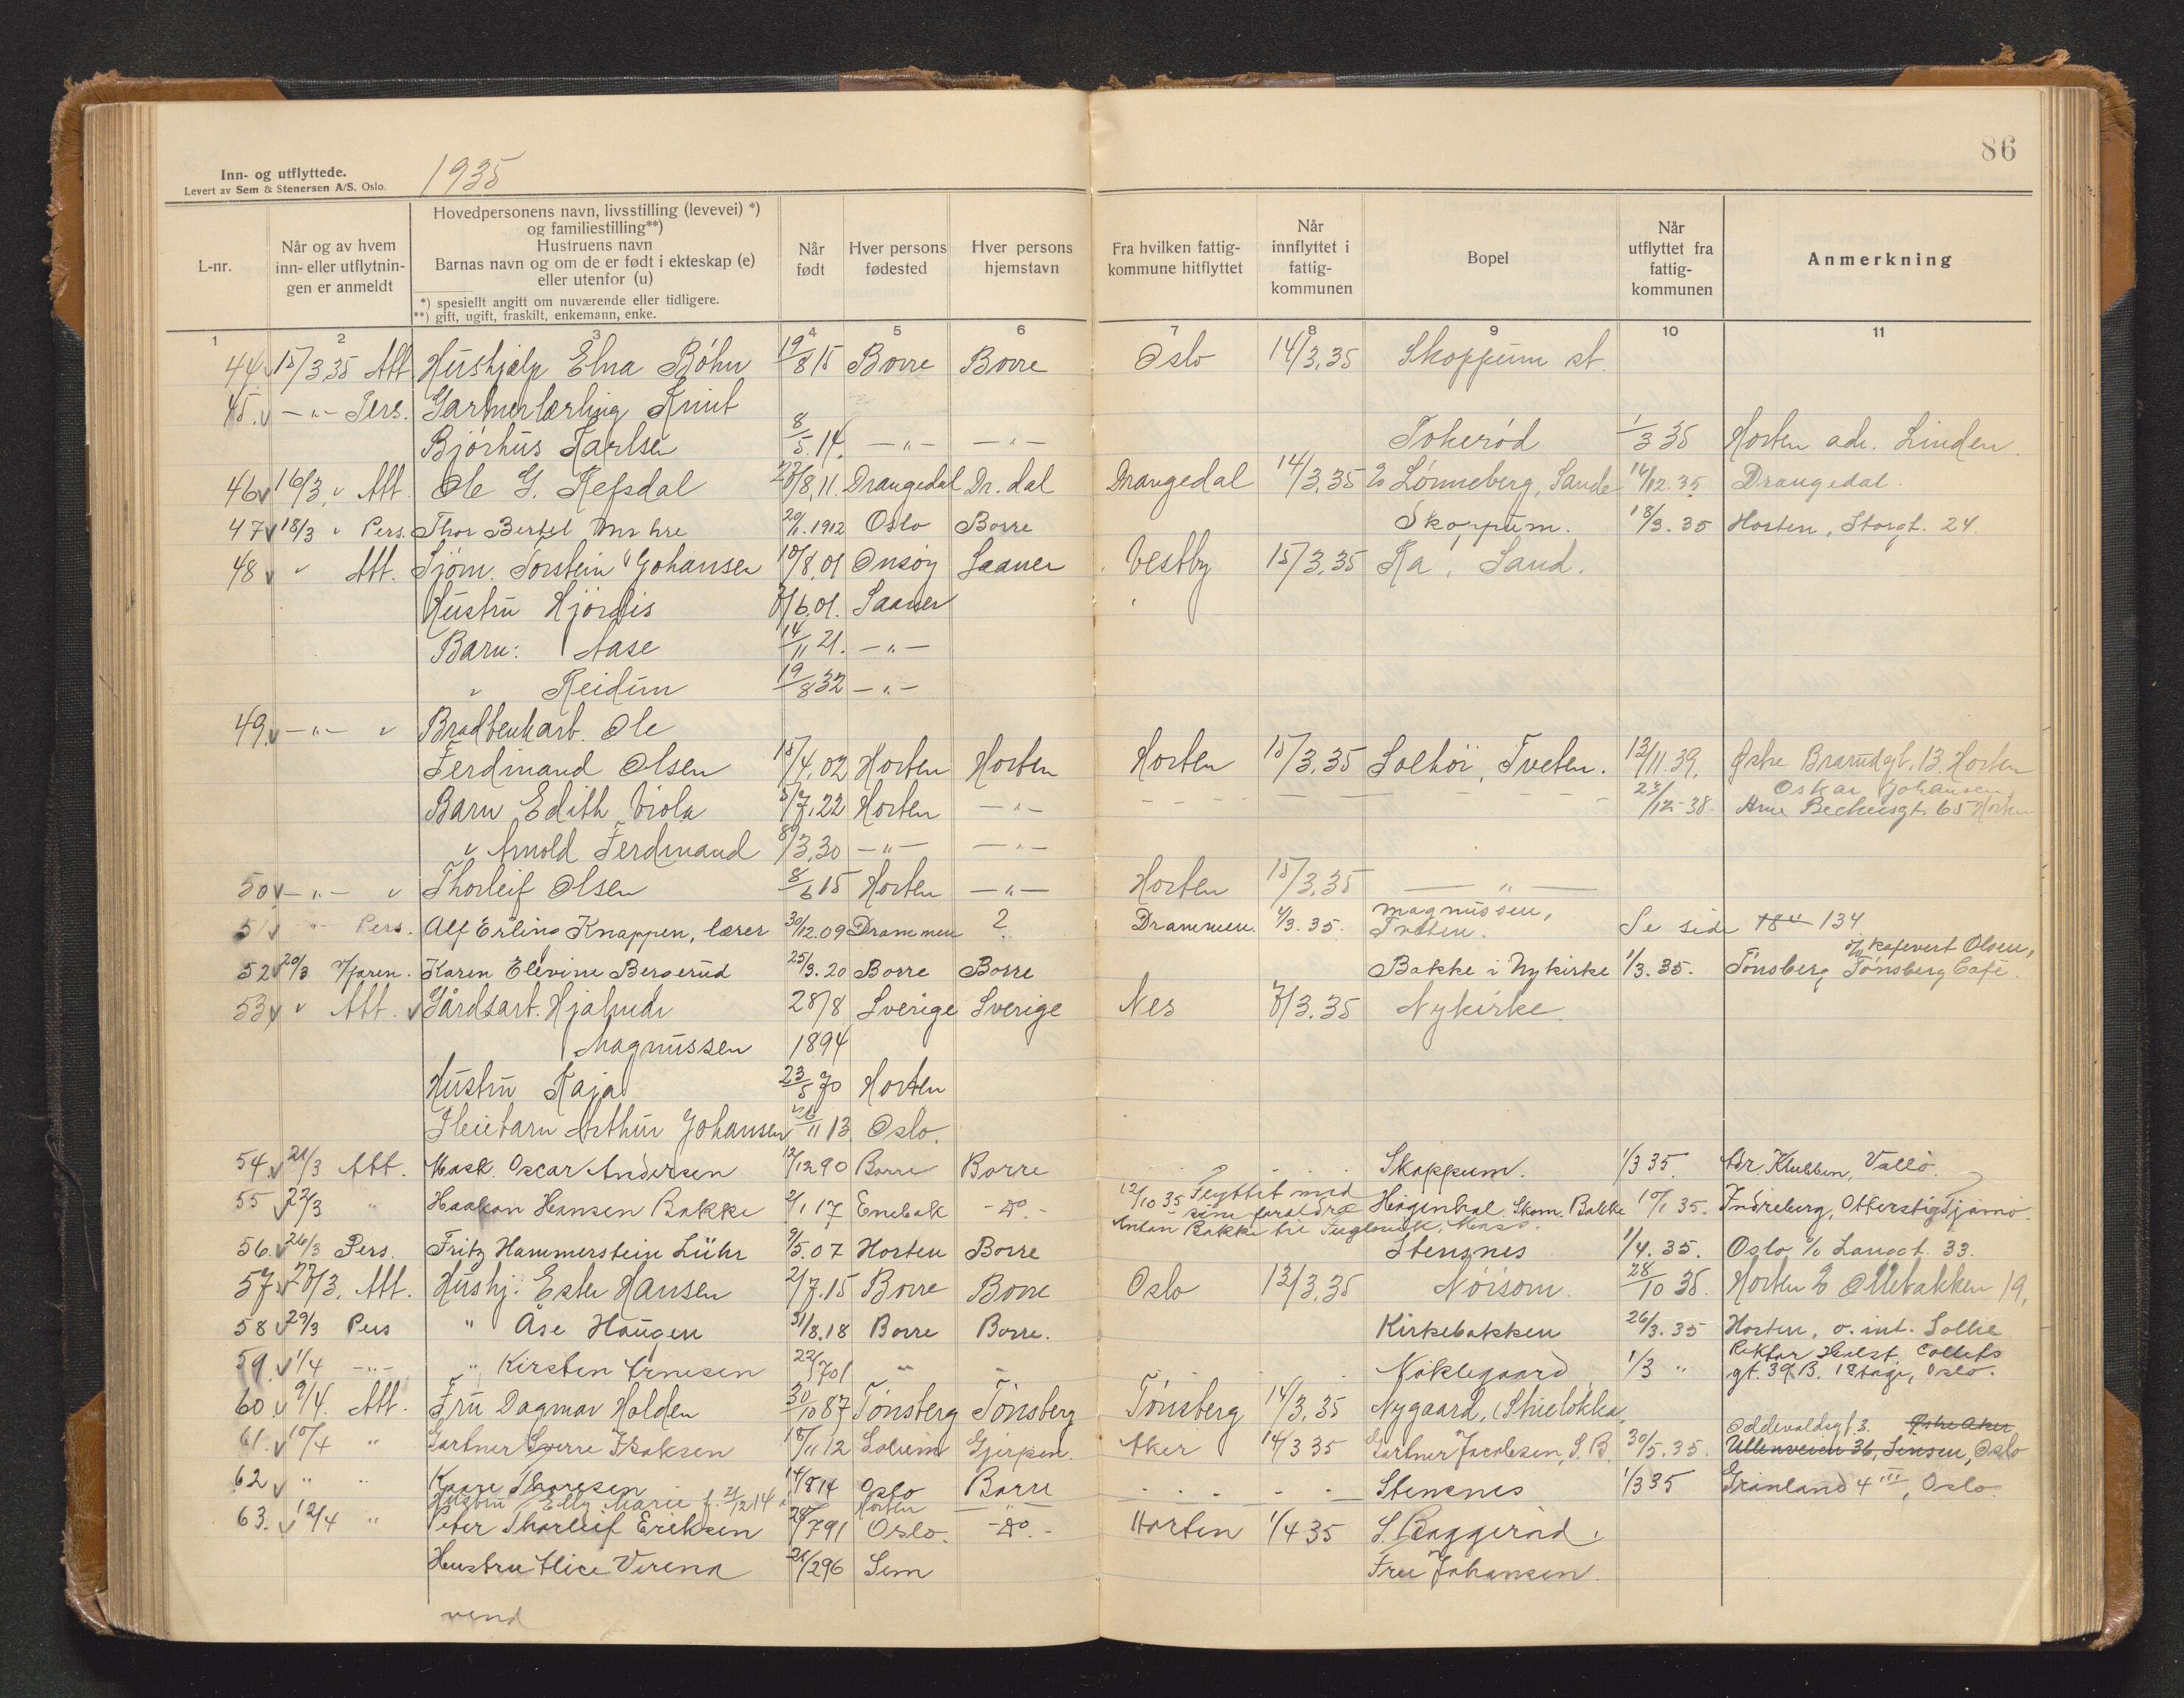 86
Inn- og utflyttede.
Levert av Sem & Stenersen A/S. Oslo.
1935
L-nr.
Når og av hvem inn- eller utflytnin- gen er anmeldt
Hovedpersonens navn, livsstilling (levevei) *)
og familiestilling**)
Hustruens navn
Barnas navn og om de er født i ekteskap (e)
eller utenfor (u)
*) spesiellt angitt om nuværende eller tidligere.
**) gift, ugift, fraskilt, enkemann, enke.
Når født
Hver persons fødested
Hver persons hjemstavn
Fra hvilken fattig- kommune hitflyttet
Når innflyttet i fattig- kommunen
Bopel
Når utflyttet fra fattig- kommunen
Anmerkning
1 2 3 4 5 6 7 8 9 10 11
44. 15/3.35 Att. Hushjelp Elna Bøhn 19/8 15 Borre Borre Oslo 14/3.35 Skoppum st.
45. —"— Pers. Gartnerlærling Knut
Bjørhus Karlsen 8/5.14. —"— —"— Tokerød 1/3 35 Horten adr. Linden.
46 16/3 " Att. Ole G. Refsdal 27/8.11. Drangedal Dr.dal Drangedal 14/3.35 c/o Lønneberg, Sande 14/12.35 Drangedal.
47 18/3 " Pers. Thor Bertel 20/1.1912 Oslo Borre Skoppum. 18/3.35 Horten, Storgt. 24.
48 " Att. Sjøm. Torstein Johansen 10/8.01 Onsøy Saaner Vestby 15/3.35 Ra, Sand.
Hustru Hjørdis 7/6.01. Saaner "
Barn: Aase 14/11 21. —"—
" Reidun 19/8 32 —"—
49. —"— " Brødbenkarb. Ole
Ferdinand Olsen 15/4.02 Horten Horten Horten 15/3.35 Solhøi, Tveten. 13/11.39. Østre Brarudgt. 13. Horten
Oskar Johansen,
Barn Edith Viola 5/7.22 Horten —"— 27/12-38. Arne Bechersgt. 65 Horten
" Arnold Ferdinand 8/3.30 —"— —"—
50 —"— " Thorleif Olsen 8/6 15 Horten —"— Horten 15/3.35 —"—
51 —"— Pers. Alf Erling Knappen, lærer 30/12.09 Drammen ? Drammen. 1/3.35. Magnussen, Tveten. Se side 134
c/o kafevert Olsen,
52 20/3 Karen Elevine Bergerud 25/3.20 Borre Borre Bakke i Nykirke 1/3.35. Tønsberg, Tønsberg Café.
53 " Att. Gårdsarb. Hjalmar 28/8 Sverige Sverige Nes 7/3.35 Nykirke
Magnussen 1894
Hustru Kaja 23/5 70 Horten
Pleiebarn Arthur Johansen 26/11 13 Oslo.
54. 21/3 Att. Mask. Oscar Andersen 12/12 90 Borre Borre Skoppum. 1/3 35. Adr. Klubben, Vallø.
55 22/3 " Haakon Hansen Bakke 2/1 17 Enebak -do.- 12/10 35 Flyttet med sine foreldre Høgenhal. Skom. Bakke 10/1 35. Indreberg, Otterstig Tjømø.
Anton Bakke til Fuglevik, Moss.
56. 26/3 Pers. Fritz Hammerstein Lühr 9/5.07 Horten Borre Stensnes 1/4.35. Oslo c/o Langgt. 33.
57 27/3. Att. Hushj. Ester Hansen 2/7.15 Borre Borre Oslo 13/3.35 Nøisom. 28/10 35 Horten c/o Ollebakken 19.
58 29/3 Pers " Åse Haugen 31/8.18 Borre Borre. Kirkebakken 26/3.35 Horten, o.int. Sollie
Rektor Holst, Colletts
59. 1/4 —"— " Kirsten Arnesen 22/5 01 " " Nøklegaard 1/3 " gt. 39 B. 1 etage, Oslo.
60. 9/4. Att. Fru Dagmar Holden 30/10 87 Tønsberg Tønsberg Tønsberg 14/3.35 Nygaard,
Oddevaldsgt. 3. Østre Aker
61. 10/4 " Gartner Sverre Isaksen 18/11 12 Solum Gjerpen. Aker 14/3 35 Gartner Jacobsen, S.B. 30/5.35. Ullenveien 36, Sinsen, Oslo
62 " " Kaare Thoresen 14/8 14 Oslo Borre Stensnes 1/3 35 Grønland 4 III, Oslo.
Hustru Elly Marie f. 21/12 14 Horten —"—
63. 12/4 " Peter Thorleif Eriksen 28/7 91 Oslo. -do.- Horten 1/4 35 S. Baggerød.
Hustru Alice Verena 21/2 96 Sem Fru Johansen.
vend